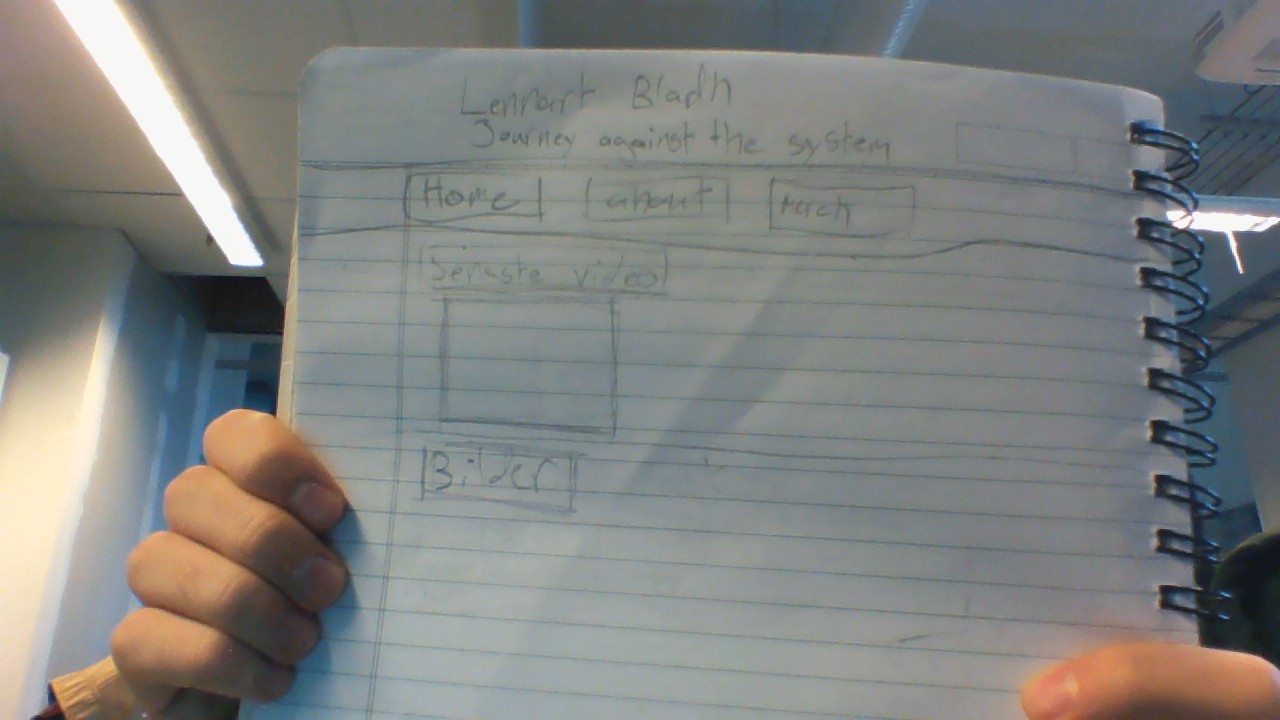 Lennart Bladh
Journey against the system
Home about merch
Senaste video
Bilder